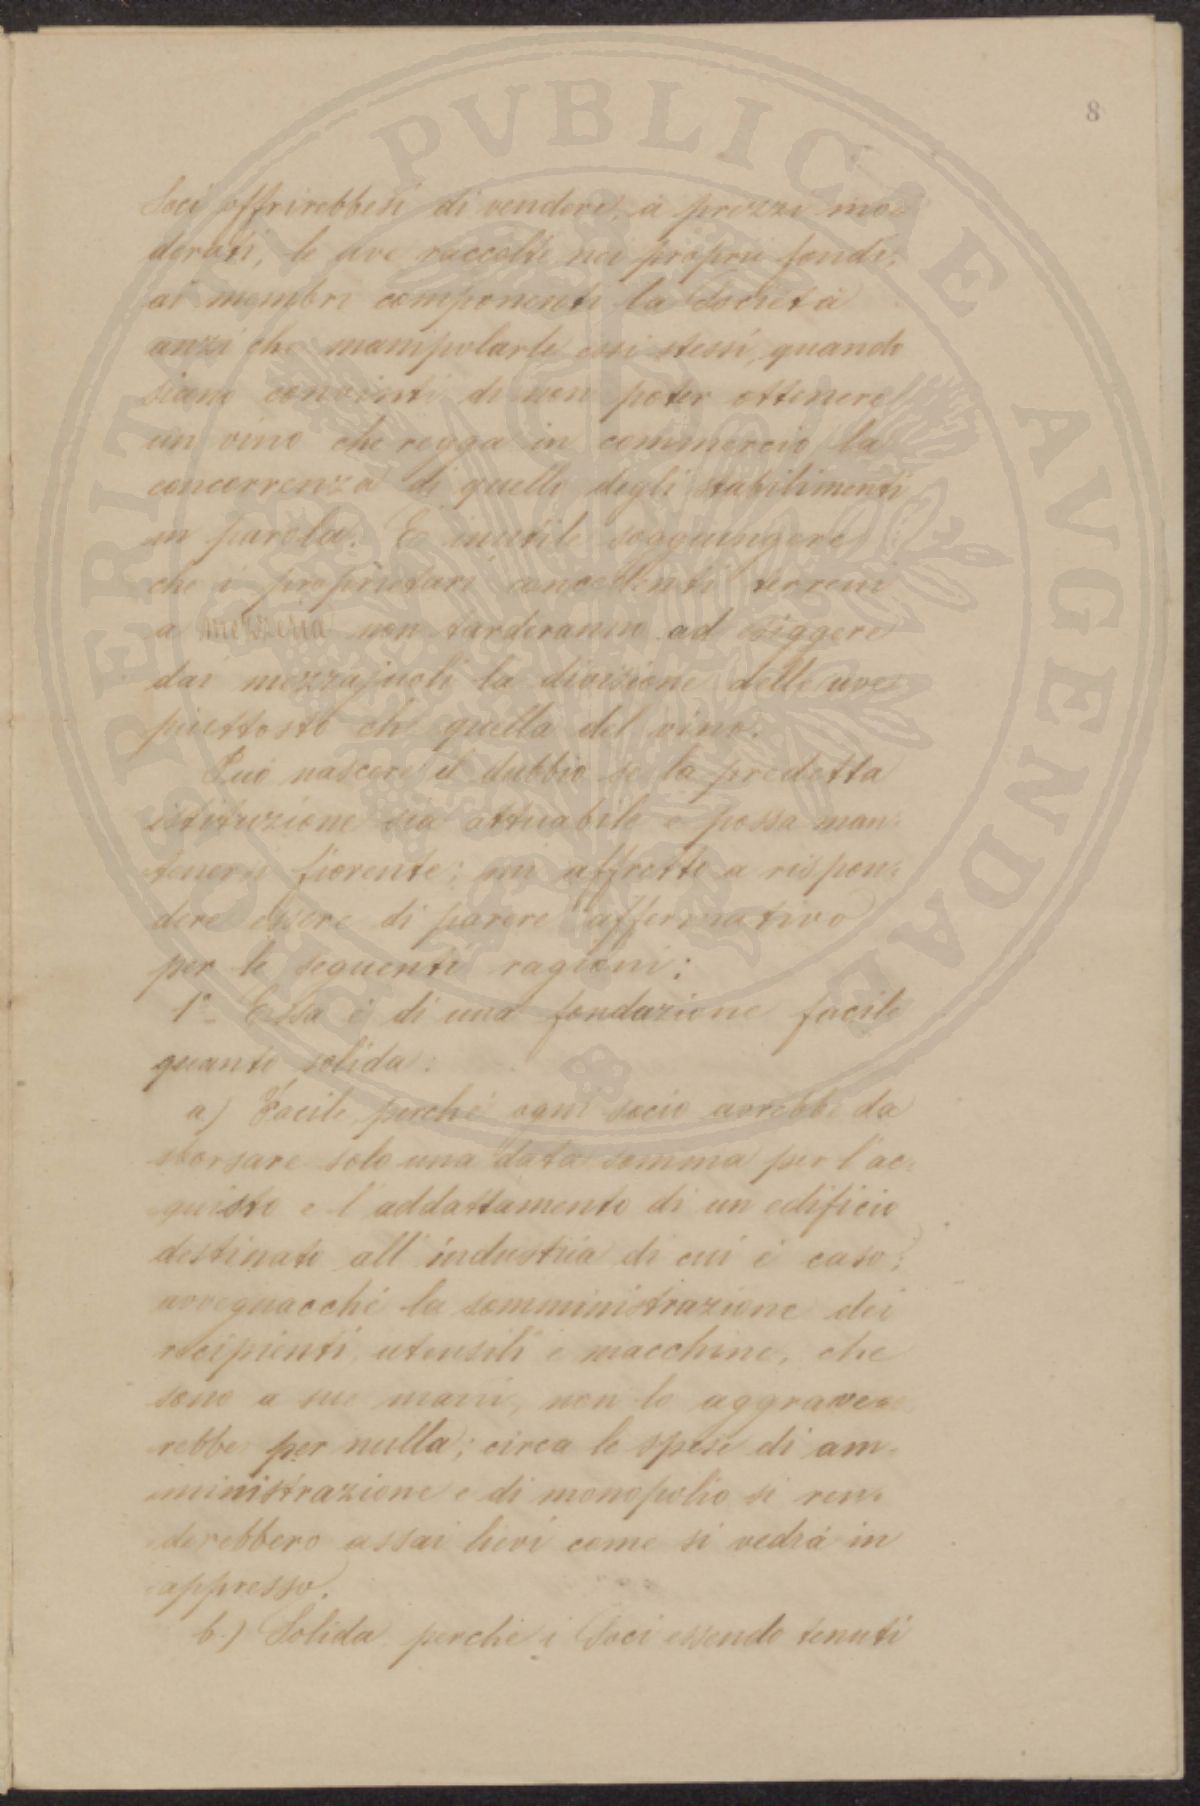 8
Soci offrirebbesi di vendere, a prezzi mo=
derati, le uve raccolte nei proprii fondi,
ai membri componenti la Società
anzi che manipolarle essi stessi, quando
siano convinti di non poter ottenere
un vino che regga in commercio la
concorrenza di quelli degli stabilimenti
in parola. È inutile soggiungere
che i proprietari concedenti terreni
a mezzeria non tarderanno ad esiggere
dai mezzajuoli la divisione delle uve
piuttosto che quella del vino.
Può nascere il dubbio se la predetta
istituzione sia attuabile e possa man=
tenersi fiorente; mi affretto a rispon=
dere essere di parere affermativo
per le seguenti ragioni:
1° Essa è di una fondazione facile
quanto solida:
a) Facile perchè ogni socio avrebbe da
sborsare solo una data somma per l'ac=
quisto e l'addattamento di un edificio
destinato all'industria di cui è caso;
avvegnacchè la somministrazione dei
recipienti, utensili e macchine, che
sono a sue mani, non lo aggrave=
rebbe per nulla; circa le spese di am=
ministrazione e di monopolio si ren=
derebbero assai lievi come si vedrà in
appresso.
b.) Solida perchè i Soci essendo tenuti
PROSPERITATI PVBLICAE AVGENDAE